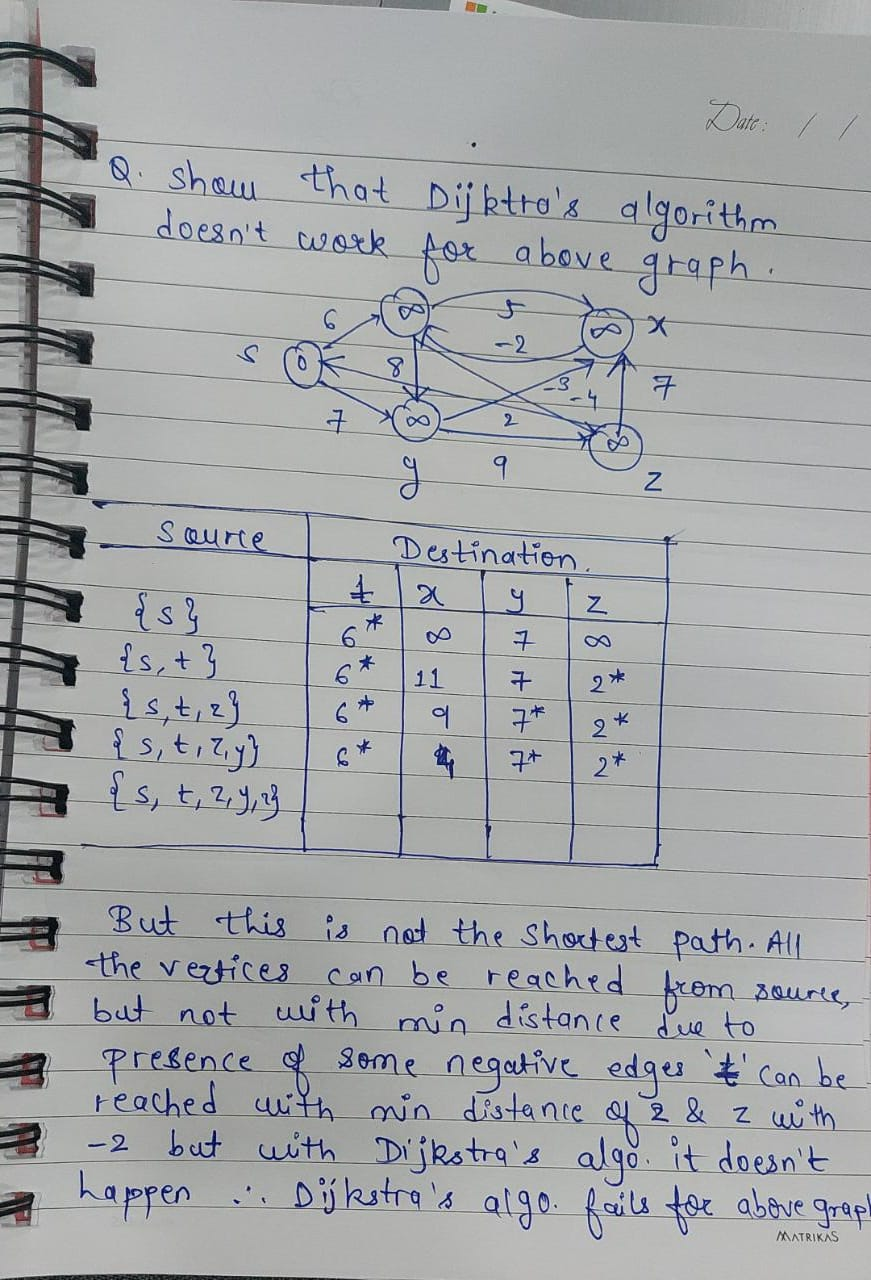 Date: / /
Q. show that Dijktra's algorithm
doesn't work for above graph.
6 ∞ 5 ∞ x
-2
s 0 8 -3 -4 7
7 ∞ 2 ∞
y 9 z
Source Destination.
t x y z
{s} 6* ∞ 7 ∞
{s,t} 6* 11 7 2*
{s,t,z} 6* 9 7* 2*
{s,t,z,y} 6* 4 7* 2*
{s, t, z, y, x}
But this is not the shortest path. All
the vertices can be reached from source,
but not with min distance due to
presence of some negative edges 't' can be
reached with min distance of 2 & z with
-2 but with Dijkstra's algo. it doesn't
happen ∴ Dijkstra's algo. fails for above grap
MATRIKAS